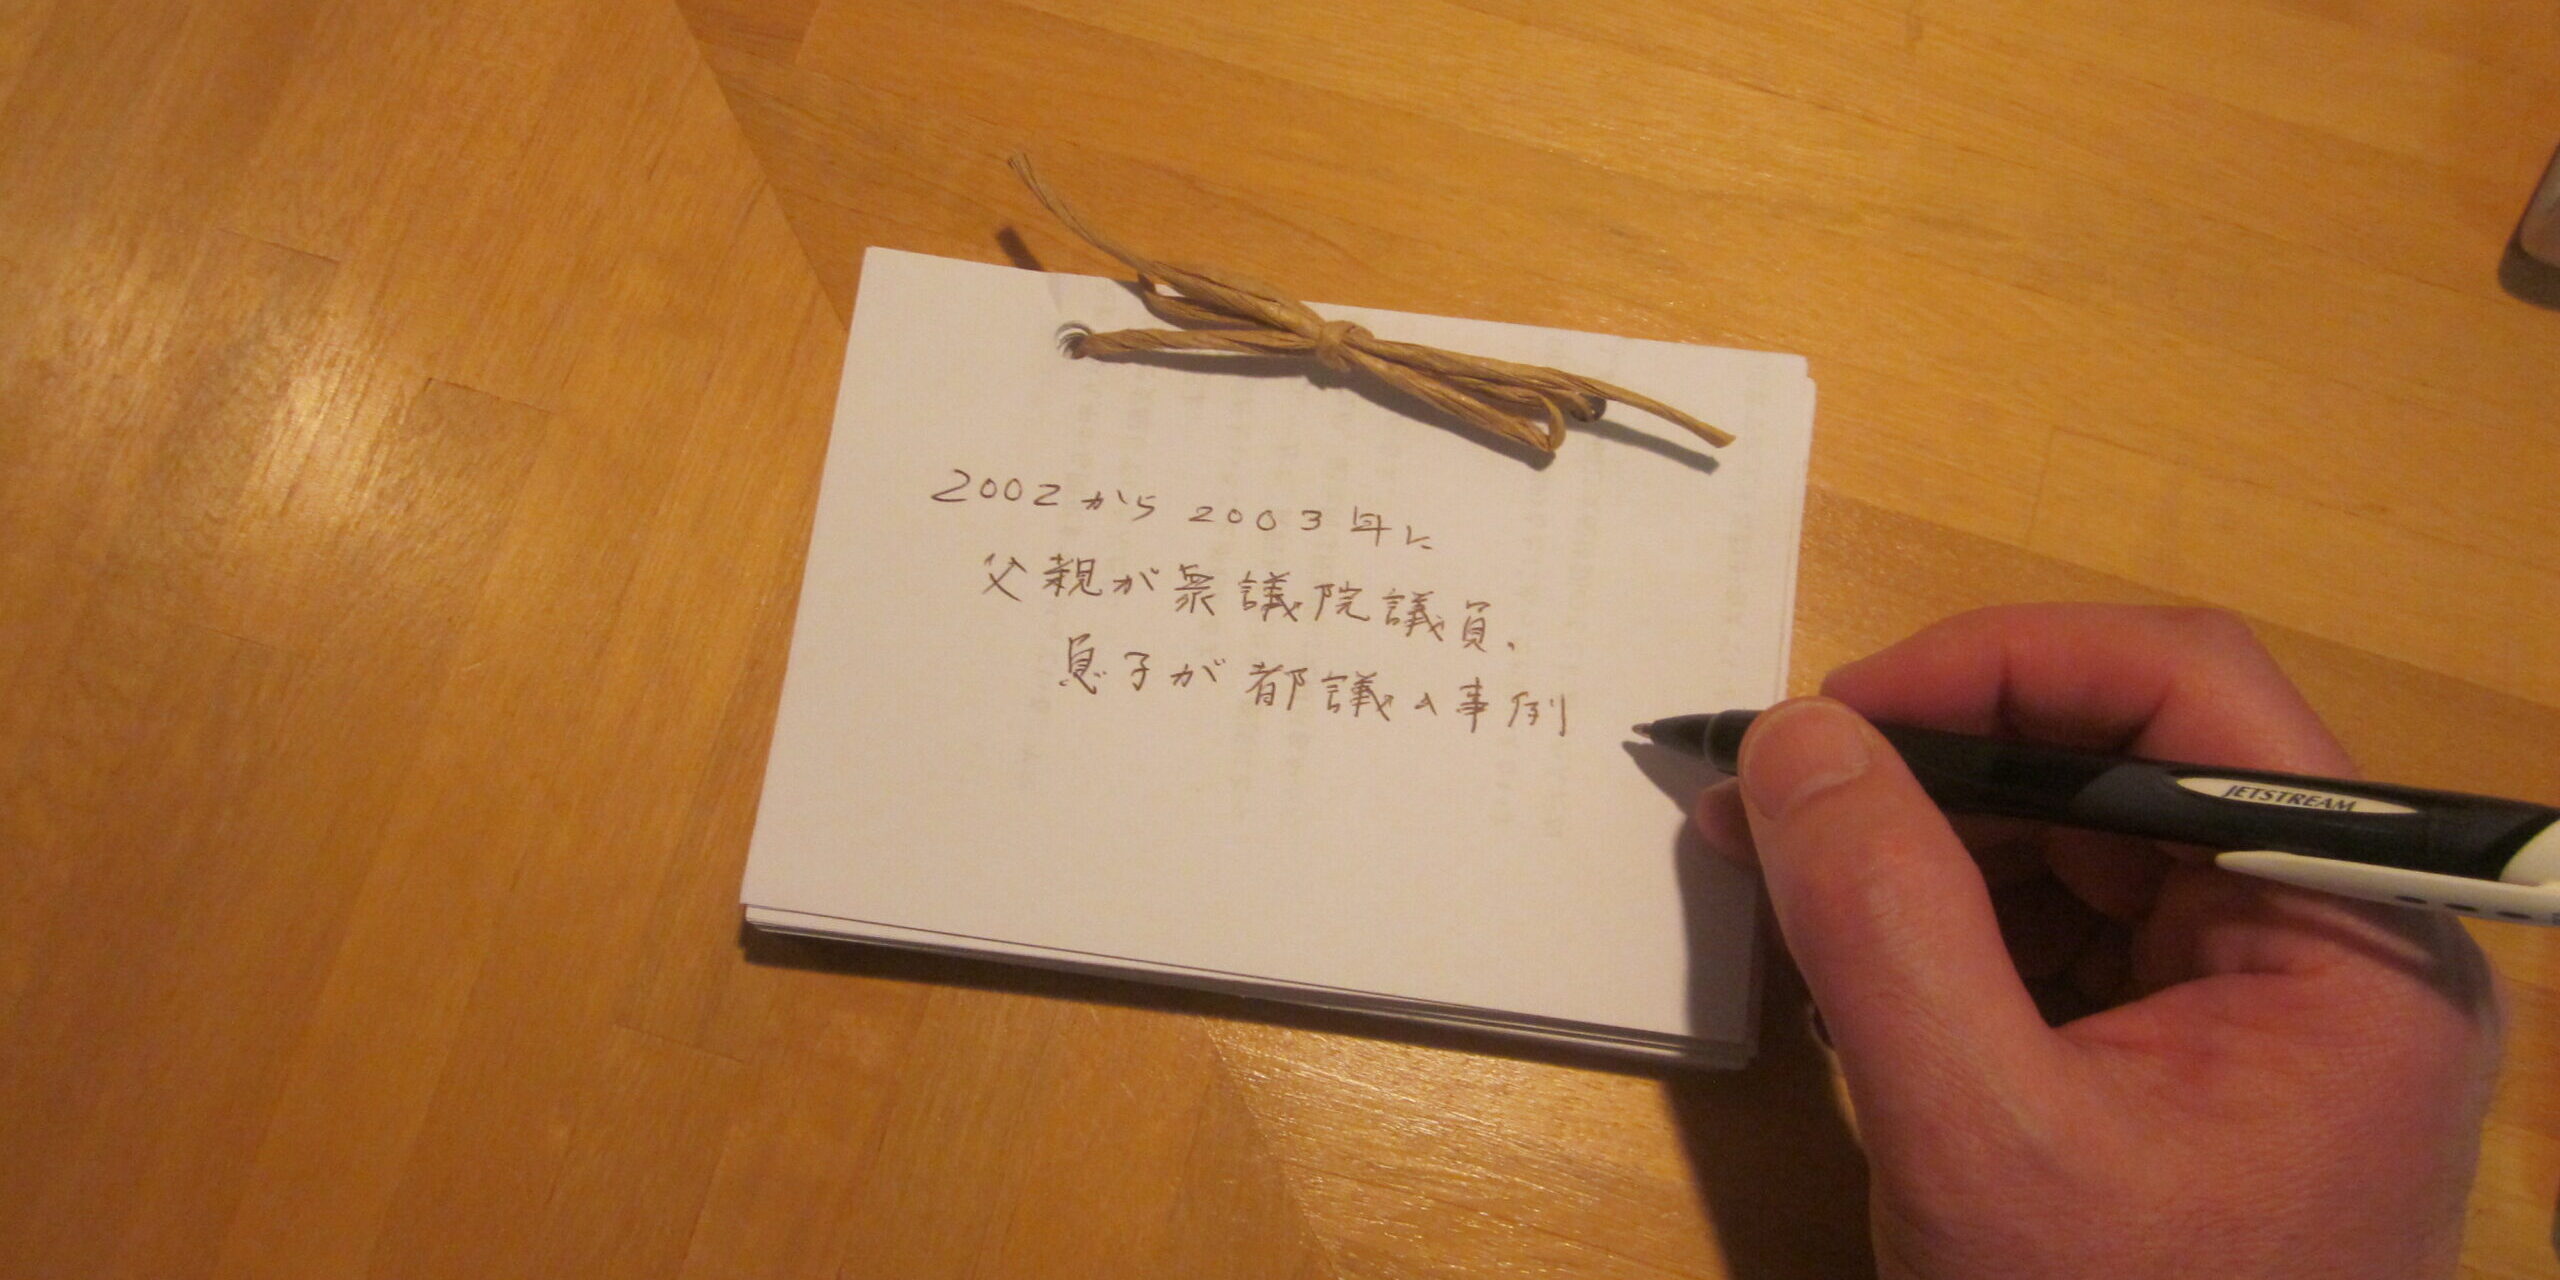 2002から2003年に
父親が衆議院議員、
息子が都議の事例
JETSTREAM